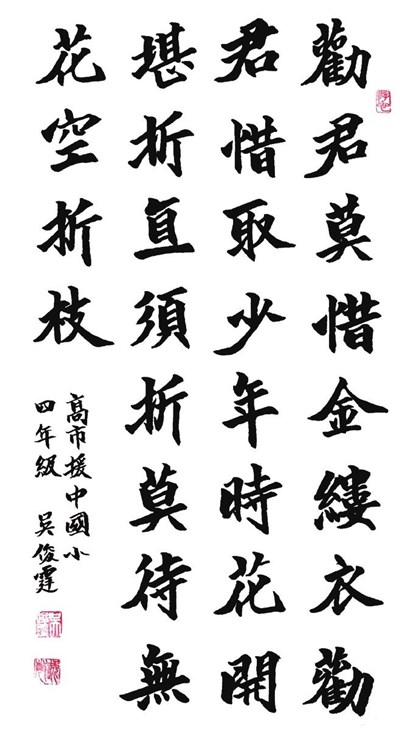 勸君莫惜金縷衣勸
君惜取少年時花開
堪折直須折莫待無
花空折枝
高市援中國小
四年級 吳俊霆